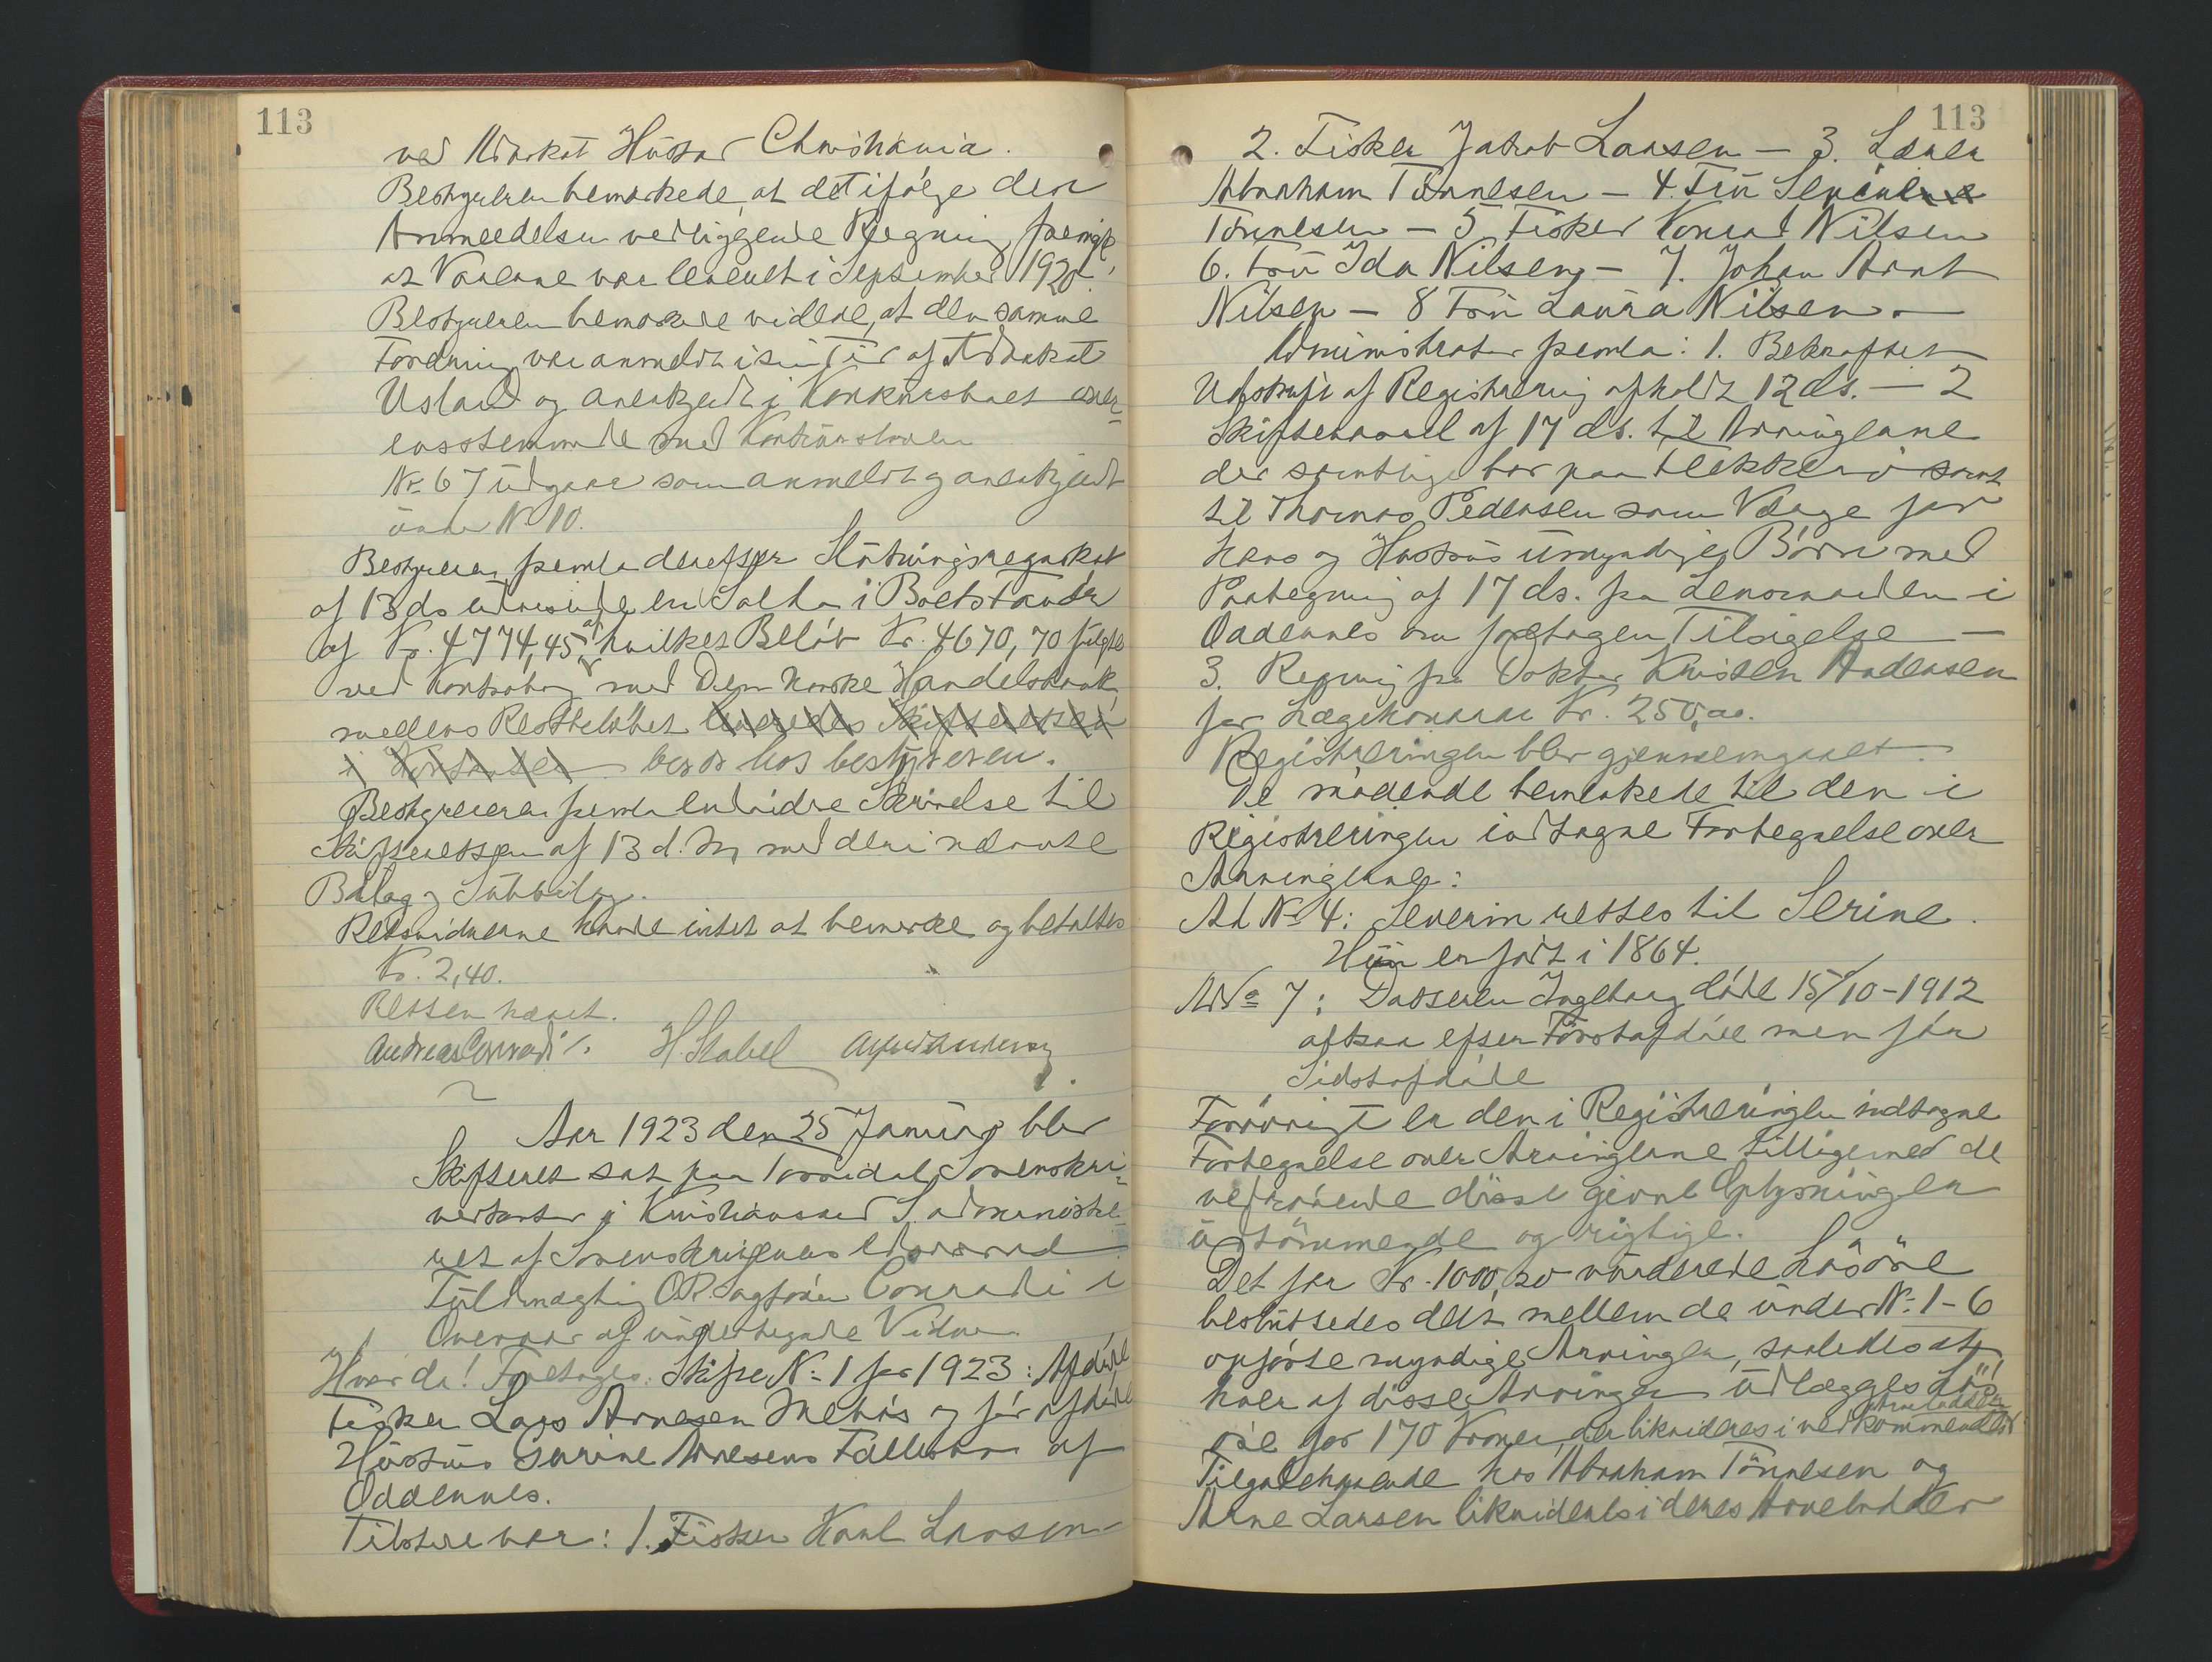 113
ved Advokat Hussar Christiania.
Bestyreren bemærkede, at det ifølge den
Anmeldelsen vedliggende Regning fremgik,
at Varerne var leveret i September 1920.
Bestyreren bemærkede videre, at den samme
Fordring var anmeldt i sin Tid af Advokat
Usland og anerkjendt i Konkursboet over-
ensstemmende med
No 67 udgaar som anmeldt og anerkjendt
under No 10.
Bestyreren fremla derefter Slutningsregnskab
af 13 ds udvisende en Saldo i Boets Favør
af Kr. 4774,45, af hvilket Beløb Kr. 4670,70 fulgte
ved Kontrabog med Den norske Handelsbank
mellens Restbeløbet leveredes Skifteretten
i beror hos bestyreren.
Bestyreren fremla endvidre Skrivelse til
Skifteretten af 13 d. M. med deri nævnte
Bilag og Subbilag.
Retsvidnerne havde intet at bemerke og betaltes
Kr. 2,40.
Retten hævet.
Andreas Conradi /. H. Stabel
Aar 1923 den 25 Januar blev
Skifteret sat paa Torridal Sorenskri-
verkontor i Kristianssand S. administre-
ret af Sorenskriverens edsvorne
Fuldmægtig O.R.sagfører Conradi i
Overvær af undertegnede Vidner.
Hvorda! Foretoges: Skifte No 1 for 1923: Afdøde
Fisker Lars Arnesen Mebøs og før afdøde
Hustrus Serine Arnesens Fællesbo af
Oddernes.
Tilstede var: 1. Fisker Karl Larsen -
113
2. Fisker Jakob Larsen - 3. Lærer
Abraham Tønnesen - 4. Fru
Tønnesen - 5. Fisker Konrad Nilsen
6. Fru Ida Nilsen - 7. Johan Arnt
Nilsen - 8 Fru Laura Nilsen. -
Administrator fremla: 1. Bekræftet
Udskrift af Registrering afholdt 12 ds. - 2
Skiftevarsel af 17 ds. til Arvingerne
der samtlige bor paa Flekkerø samt
til Thomas Pedersen som Værge for
hans og Hustrus umyndige Børn med
Paategning af 17 ds. fra Lensmanden i
Oddernes om foretagen Tilsigelse -
3. Regning fra Doktor Kristen Andersen
for Lægehonorar Kr. 250,00.
Registreringen blev gjennemgaaet.
De mødende bemerkede til den i
Registreringen indtagne Fortegnelse over
Arvingerne:
Ad No 4: Severin rettes til Serine.
Hun er født i 1864.
Ad No 7: Datteren Ingeborg døde 15/10-1912
altsaa efter Førstafdøde men før
Sidstafdøde
Forøvrigt er den i Registreringen indtagne
Fortegnelse over Arvingerne tilligemed de
vedrørende disse givne Oplysninger
udtømmende og rigtige.
Det for Kr. 1000,20 vurderede Løsøre
besluttedes delt mellem de under No 1-6
opførte myndige Arvinger, saaledes at
hver af disse Arvinger udlægges Løs-
øre for 170 Kroner, der likvideres i vedkommendes Arvelodder
Tilgodehavende hos Abraham Tønnesen og
Arne Larsen likvideres i deres Arvelodder